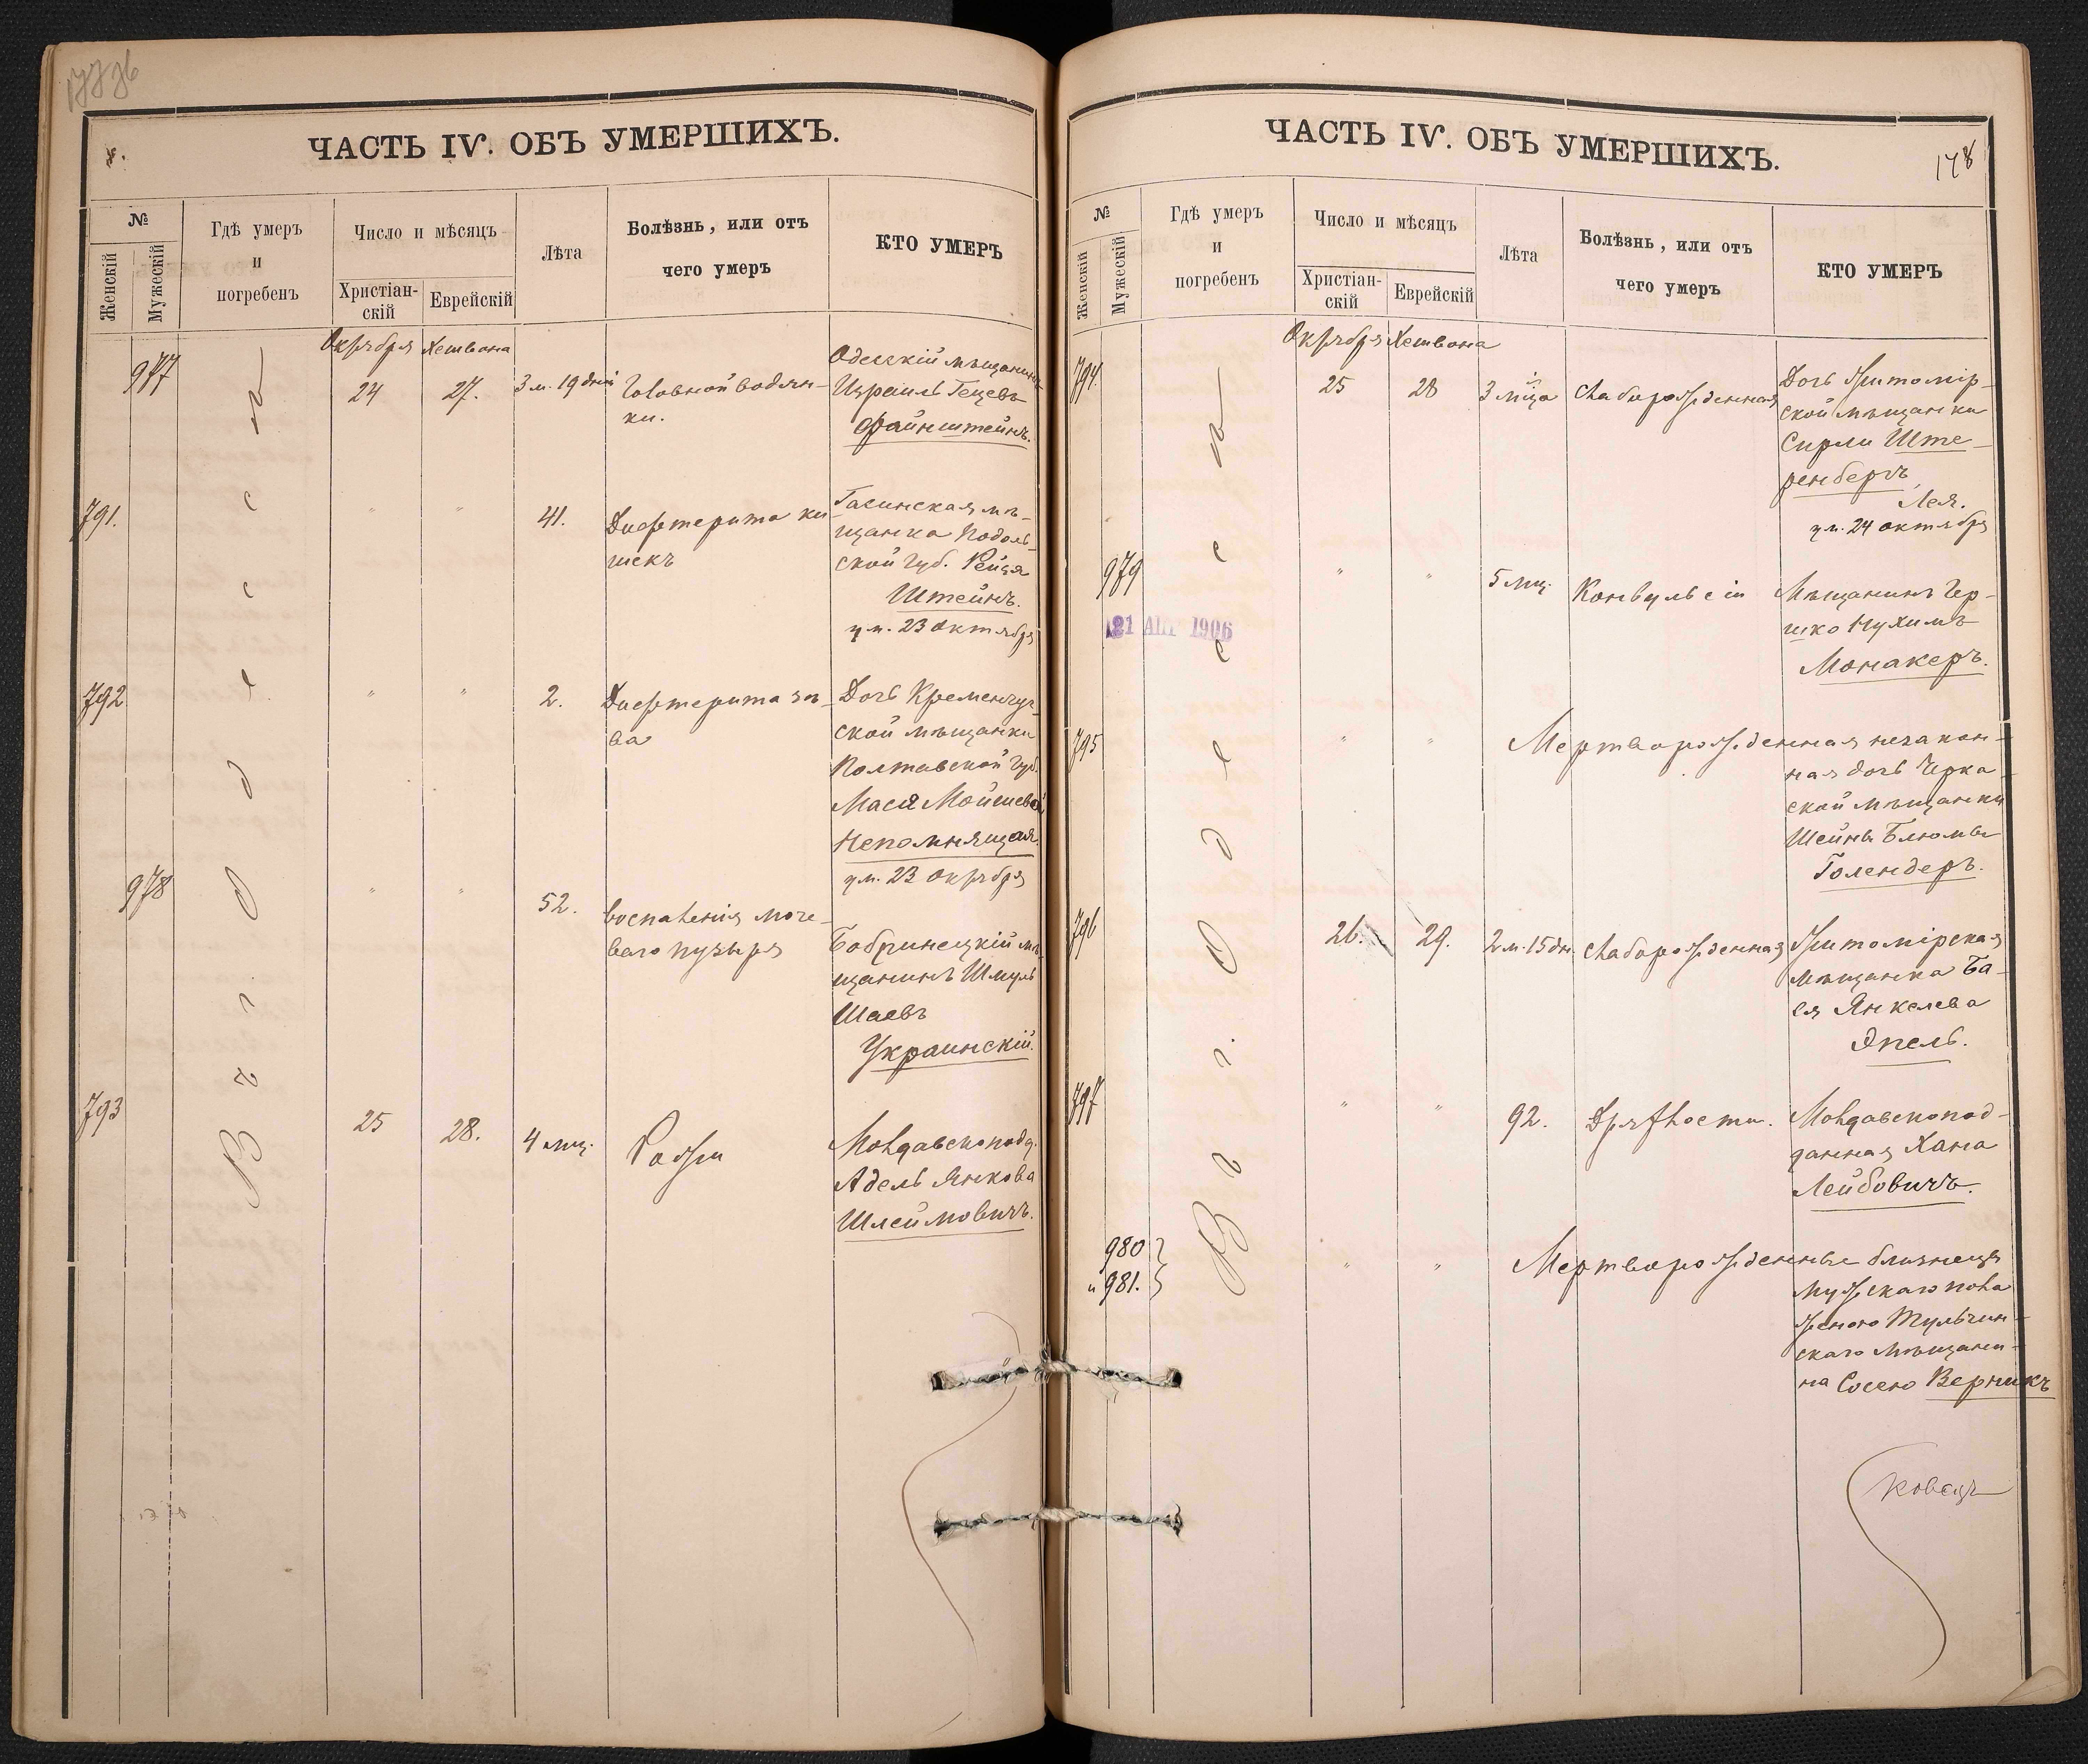 ЧАСТЬ IV. ОБЪ УМЕРШИХЪ.
№
Женскій
Мужескій
Гдѣ умеръ
и
погребенъ
Число и мѣсяцъ
Христіан-
скій
Еврейскій
Лѣта
Болѣзнь, или отъ
чего умеръ
КТО УМЕРЪ
Въ г. Одессѣ
Октября Хешвона
977
24
27.
3 м. 19 дней
Головной водян-
ки.
Одесскій мѣщанинъ
Израиль Гецевъ
Файнштейнъ.
791.
"
"
41.
Дифтерита ки-
шекъ
мѣ-
щанка Подоль-
ской губ. Рейзя
Штейнъ.
ум. 23 октября
792
"
"
2.
Дифтерита зѣ-
ва
Дочь Кременчуг-
ской мѣщанки
Полтавской губ.
Мася Мойшева
Непомнящая.
ум. 23 Октября
978
"
"
52.
Воспаленія моче-
ваго пузыря
Бобринецкій мѣ-
щанинъ Шмуль
Шаевъ
Украинскій.
793
25
28.
4 мц.
Рожи
Молдавскоподд.
Адель Янкова
Шлеймовичъ.
ЧАСТЬ IV. ОБЪ УМЕРШИХЪ.
178
№
Женскій
Мужескій
Гдѣ умеръ
и
погребенъ
Число и мѣсяцъ
Христіан-
скій
Еврейскій
Лѣта
Болѣзнь, или отъ
чего умеръ
КТО УМЕРЪ
Въ г. Одессѣ
Октября Хешвона
794.
25
28
3 мца
Слаборожденная
Дочь Житомір-
ской мѣщанки
Сирли Ште-
ренбергъ
Лея.
ум. 24 октября
979
"
"
5 мц.
Конвульсіи
Мѣщанинъ Гер-
шко Нухимъ
Монакеръ.
21 АПР 1906
795
"
"
Мертворожденная незакон-
ная дочь Черка-
ской мѣщанки
Шейны Блюмы
Голендеръ.
796
26.
29.
2 м. 15 дн.
Слаборожденная
Житомірская
мѣщанка Ба-
ся Янкелева
Эпель.
797
"
"
92.
Дряхлости.
Молдавскопод-
данная Хана
Лейбовичъ.
980
и 981.
"
"
Мертворожденные близнецы
мужскаго пола
женою Тульчин-
скаго мѣщани-
на Сосею Верникъ